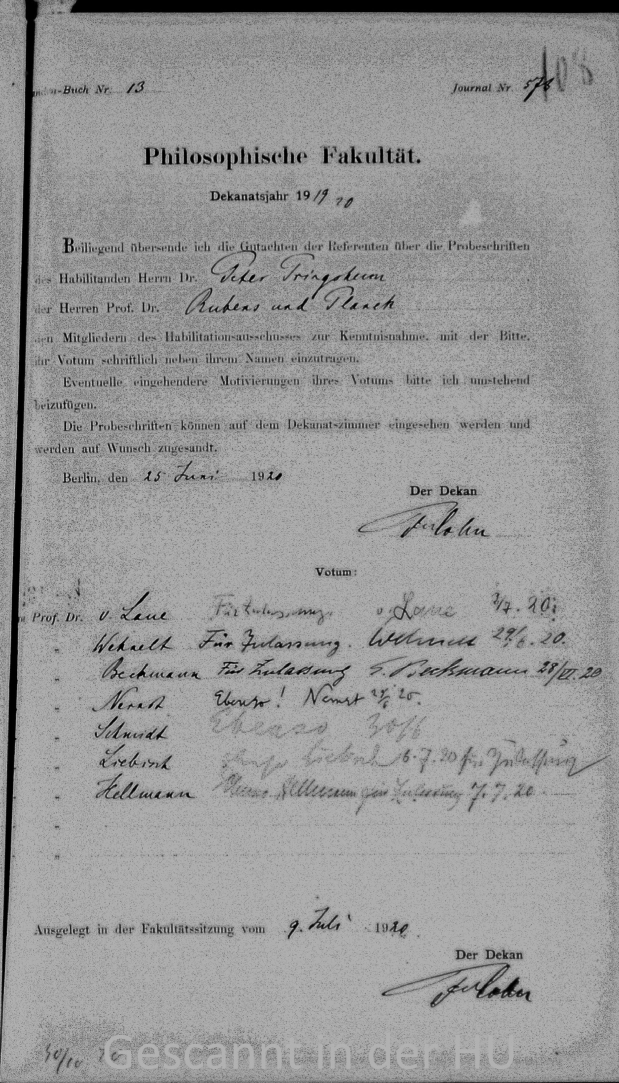 -Buch Nr. 13 Journal Nr. 578
108
Philosophische Fakultät.
Dekanatsjahr 1919 20
Beiliegend übersende ich die Gutachten der Referenten über die Probeschriften
des Habilitanden Herrn Dr. Peter Pringsheim
der Herren Prof. Dr. Rubens und Planck
den Mitgliedern des Habilitationsausschusses zur Kenntnisnahme, mit der Bitte,
ihr Votum schriftlich neben ihrem Namen einzutragen.
Eventuelle eingehendere Motivierungen ihres Votums bitte ich umstehend
beizufügen.
Die Probeschriften können auf dem Dekanatszimmer eingesehen werden und
werden auf Wunsch zugesandt.
Berlin, den 25 Juni 1920
Der Dekan
Cohn
Votum:
Prof. Dr. v. Laue Für Zulassung. v. Laue 2/7. 20.
" Wehnelt Für Zulassung. Wehnelt 29/6. 20.
" Beckmann Für Zulassung E. Beckmann 28/VI. 20
" Nernst Ebenso! Nernst 20.
" Schmidt Ebenso 30/6
" Liebisch Liebisch 6.7.20 für Zulassung
" Hellmann Hellmann für Zulassung 7.7.20
"
"
Ausgelegt in der Fakultätssitzung vom 9. Juli 1920.
Der Dekan
Cohn
Gescannt in der HU